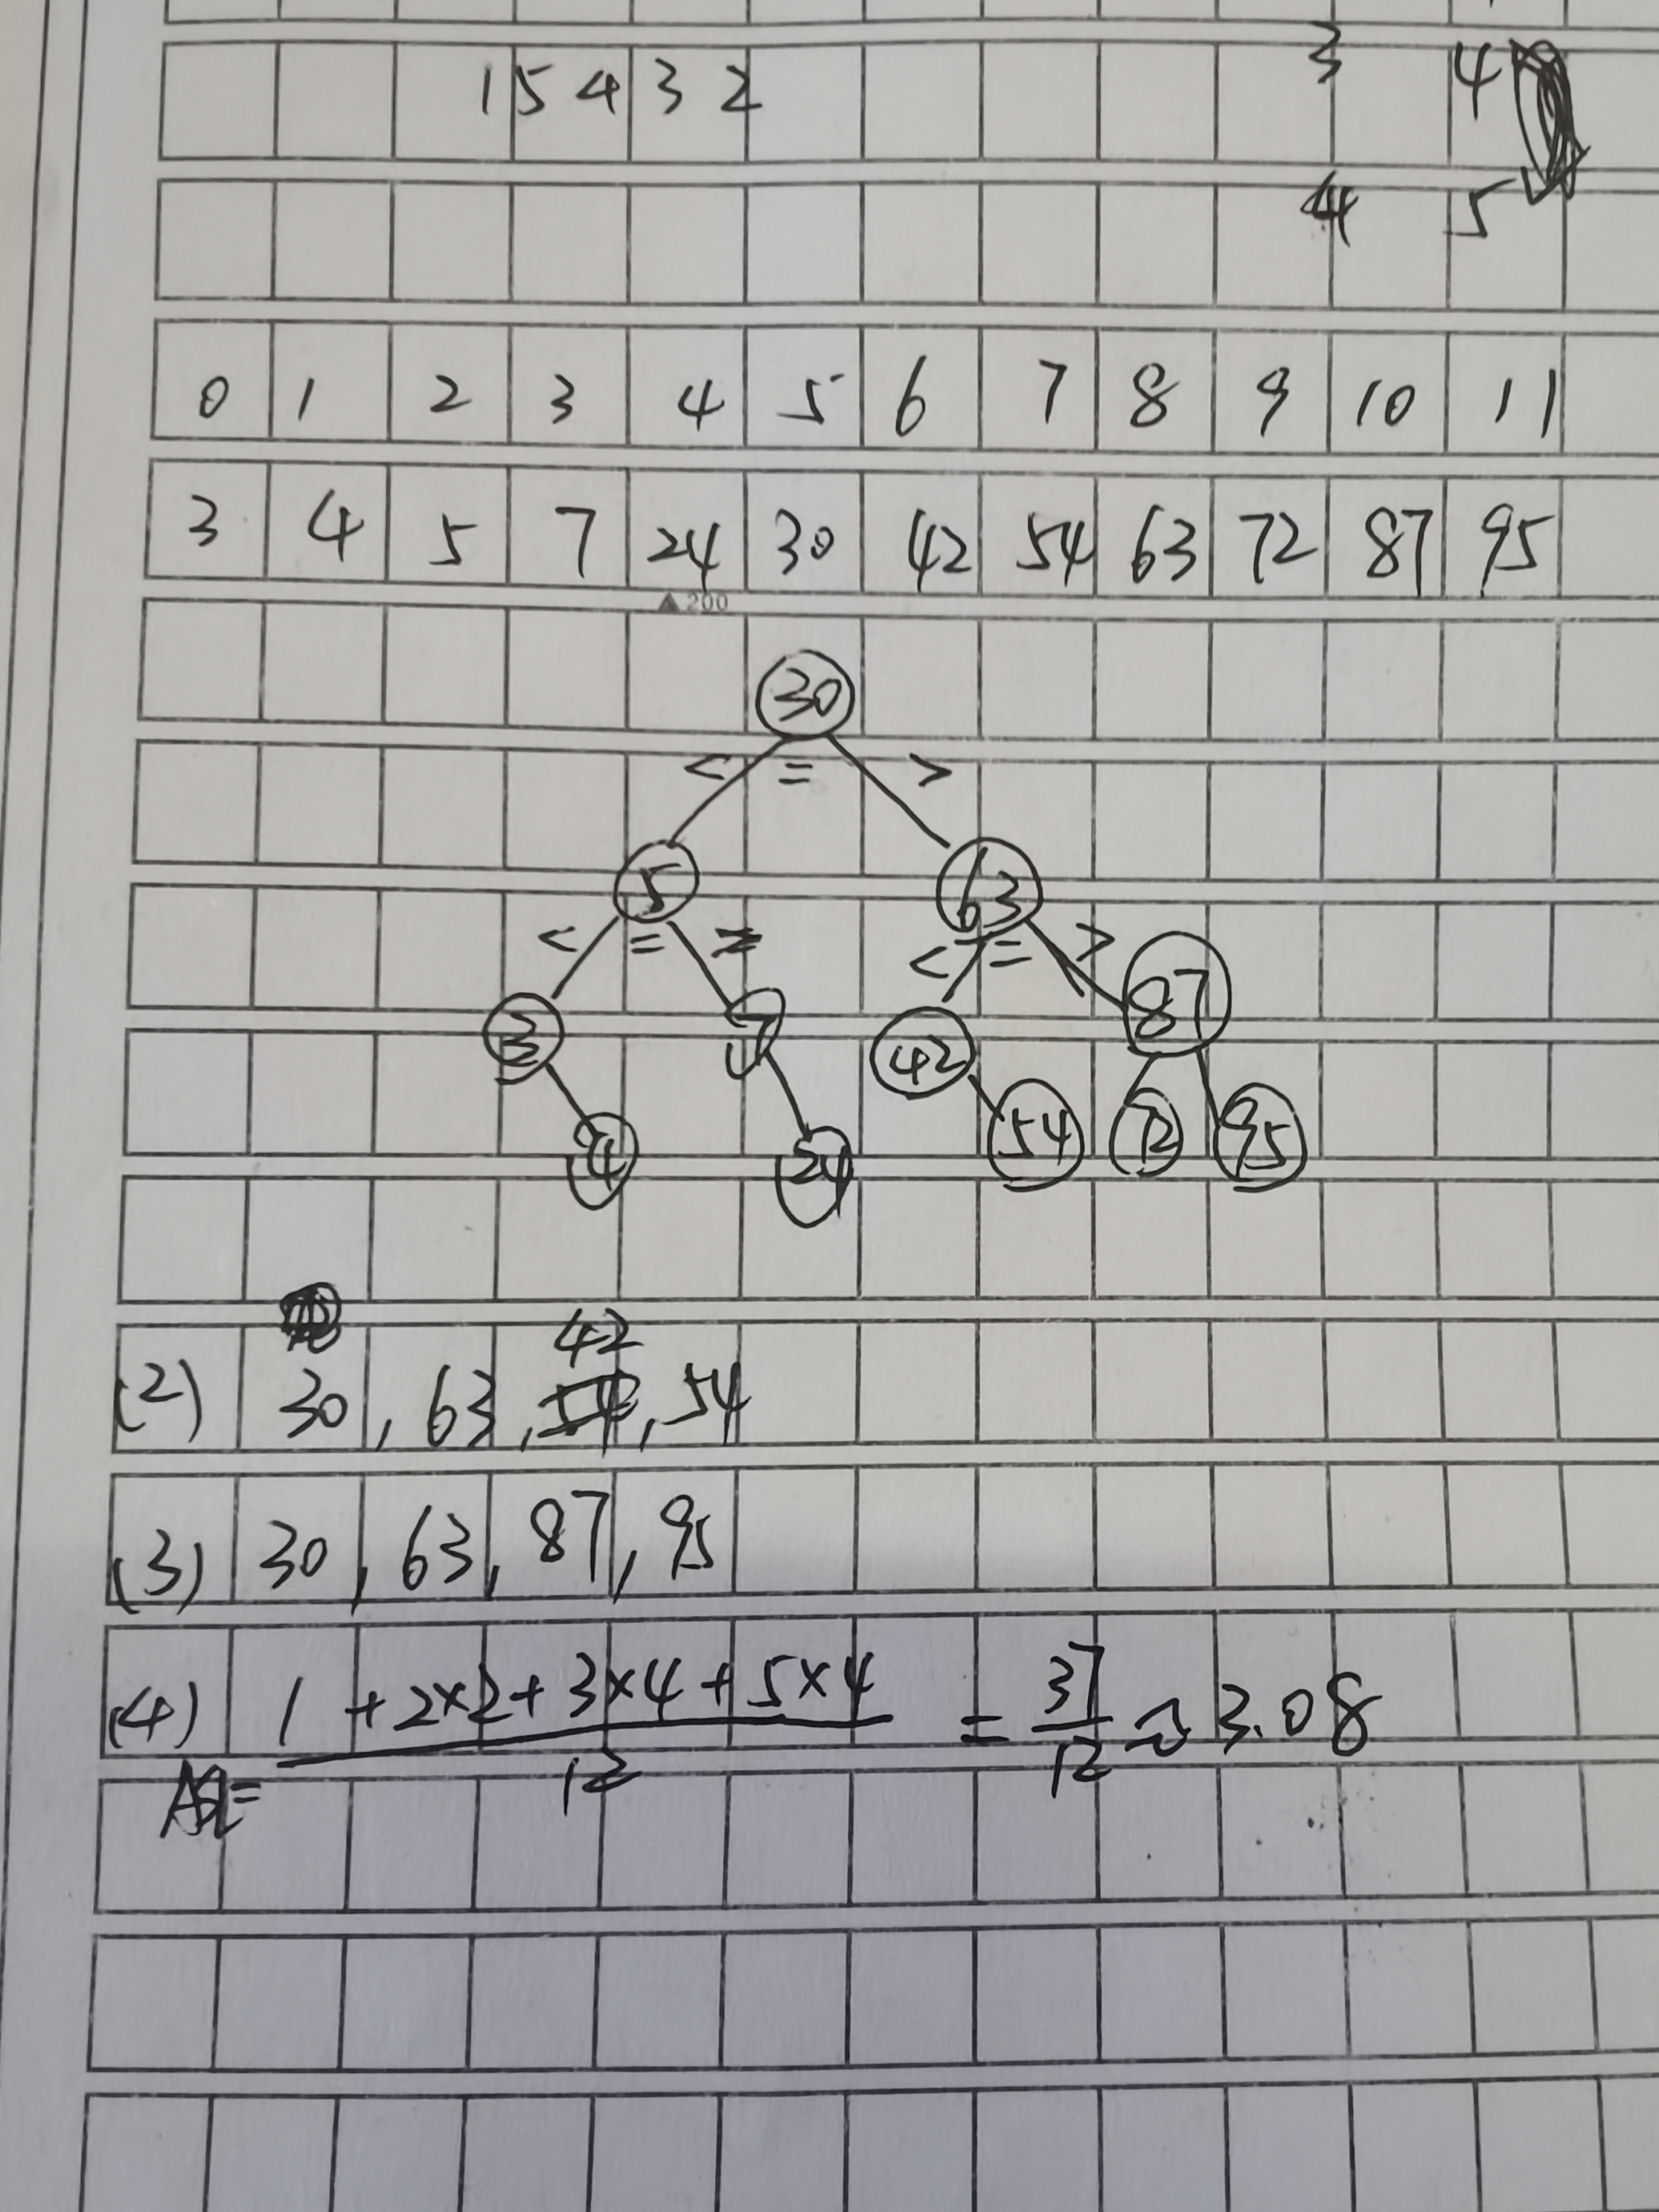 3 4
1 5 4 3 2
4 5
0 1 2 3 4 5 6 7 8 9 10 11
3 4 5 7 24 30 42 54 63 72 87 95
▲200
30
< = >
5 63
< = > < = >
3 7 42 87
4 24 54 72 95
42
(2) 30, 63, 54, 54
(3) 30, 63, 87, 95
(4) 1 + 2×2 + 3×4 + 5×4 = 37 ≈ 3.08
ASL= 12 12